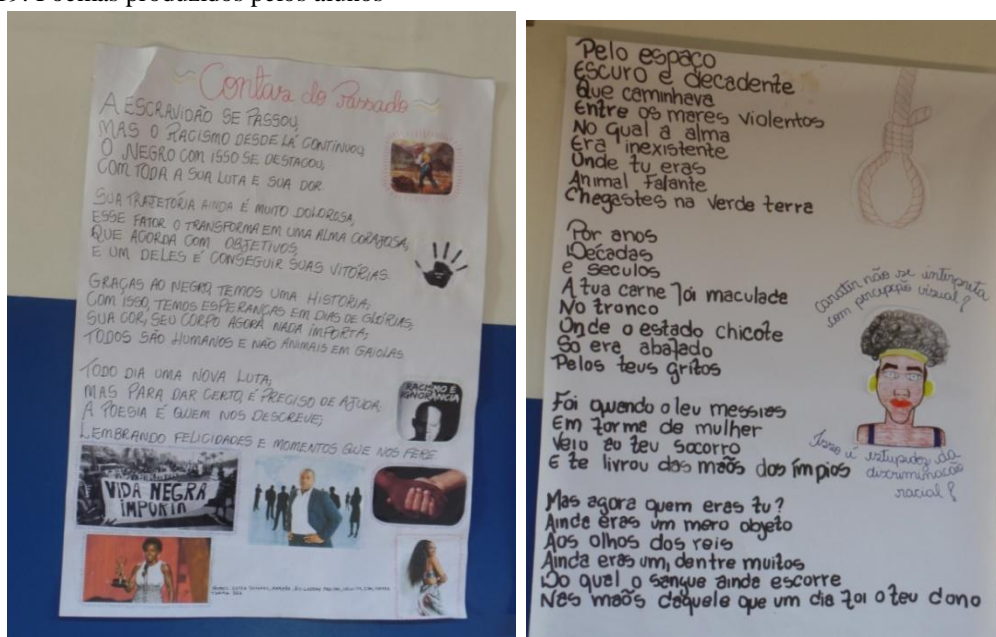 Poemas produzidos pelos alunos
Contas do Passado
A ESCRAVIDÃO SE PASSOU,
MAS O RACISMO DESDE LÁ CONTINUOU,
O NEGRO COM ISSO SE DESTACOU,
COM TODA A SUA LUTA E SUA DOR.
SUA TRAJETÓRIA AINDA É MUITO DOLOROSA,
ESSE FATOR O TRANSFORMA EM UMA ALMA CORAJOSA,
QUE ACORDA COM OBJETIVOS,
E UM DELES É CONSEGUIR SUAS VITÓRIAS.
GRAÇAS AO NEGRO, TEMOS UMA HISTÓRIA,
COM ISSO, TEMOS ESPERANÇAS EM DIAS DE GLÓRIAS,
SUA COR, SEU CORPO AGORA NADA IMPORTA,
TODOS SÃO HUMANOS E NÃO ANIMAIS EM GAIOLAS
TODO DIA UMA NOVA LUTA,
MAS PARA DAR CERTO, É PRECISO DE AJUDA.
A POESIA É QUEM NOS DESCREVE,
LEMBRANDO FELICIDADES E MOMENTOS QUE NOS FERE
RACISMO É
IGNORÂNCIA
VIDA NEGRA
IMPORTA
Pelo espaço
Escuro e decadente
Que caminhava
Entre os mares violentos
No qual a alma
Era inexistente
Onde tu eras
Animal Falante
Chegastes na verde terra
Por anos
Decadas
e seculos
A tua carne foi maculade
No tronco
Onde o estado chicote
Só era abafado
Pelos teus gritos
Foi quando o teu messias
Em forme de mulher
Veio ao teu socorro
E te livrou das maõs dos ímpios
Mas agora quem eras tu?
Ainda eras um mero objeto
Aos olhos dos reis
Ainda eras um, dentre muitos
Do qual o sangue ainda escorre
Nas maõs daquele que um dia foi o teu dono
não se interpreta
com visual?
Isso é estupidez da
discriminação
racial?